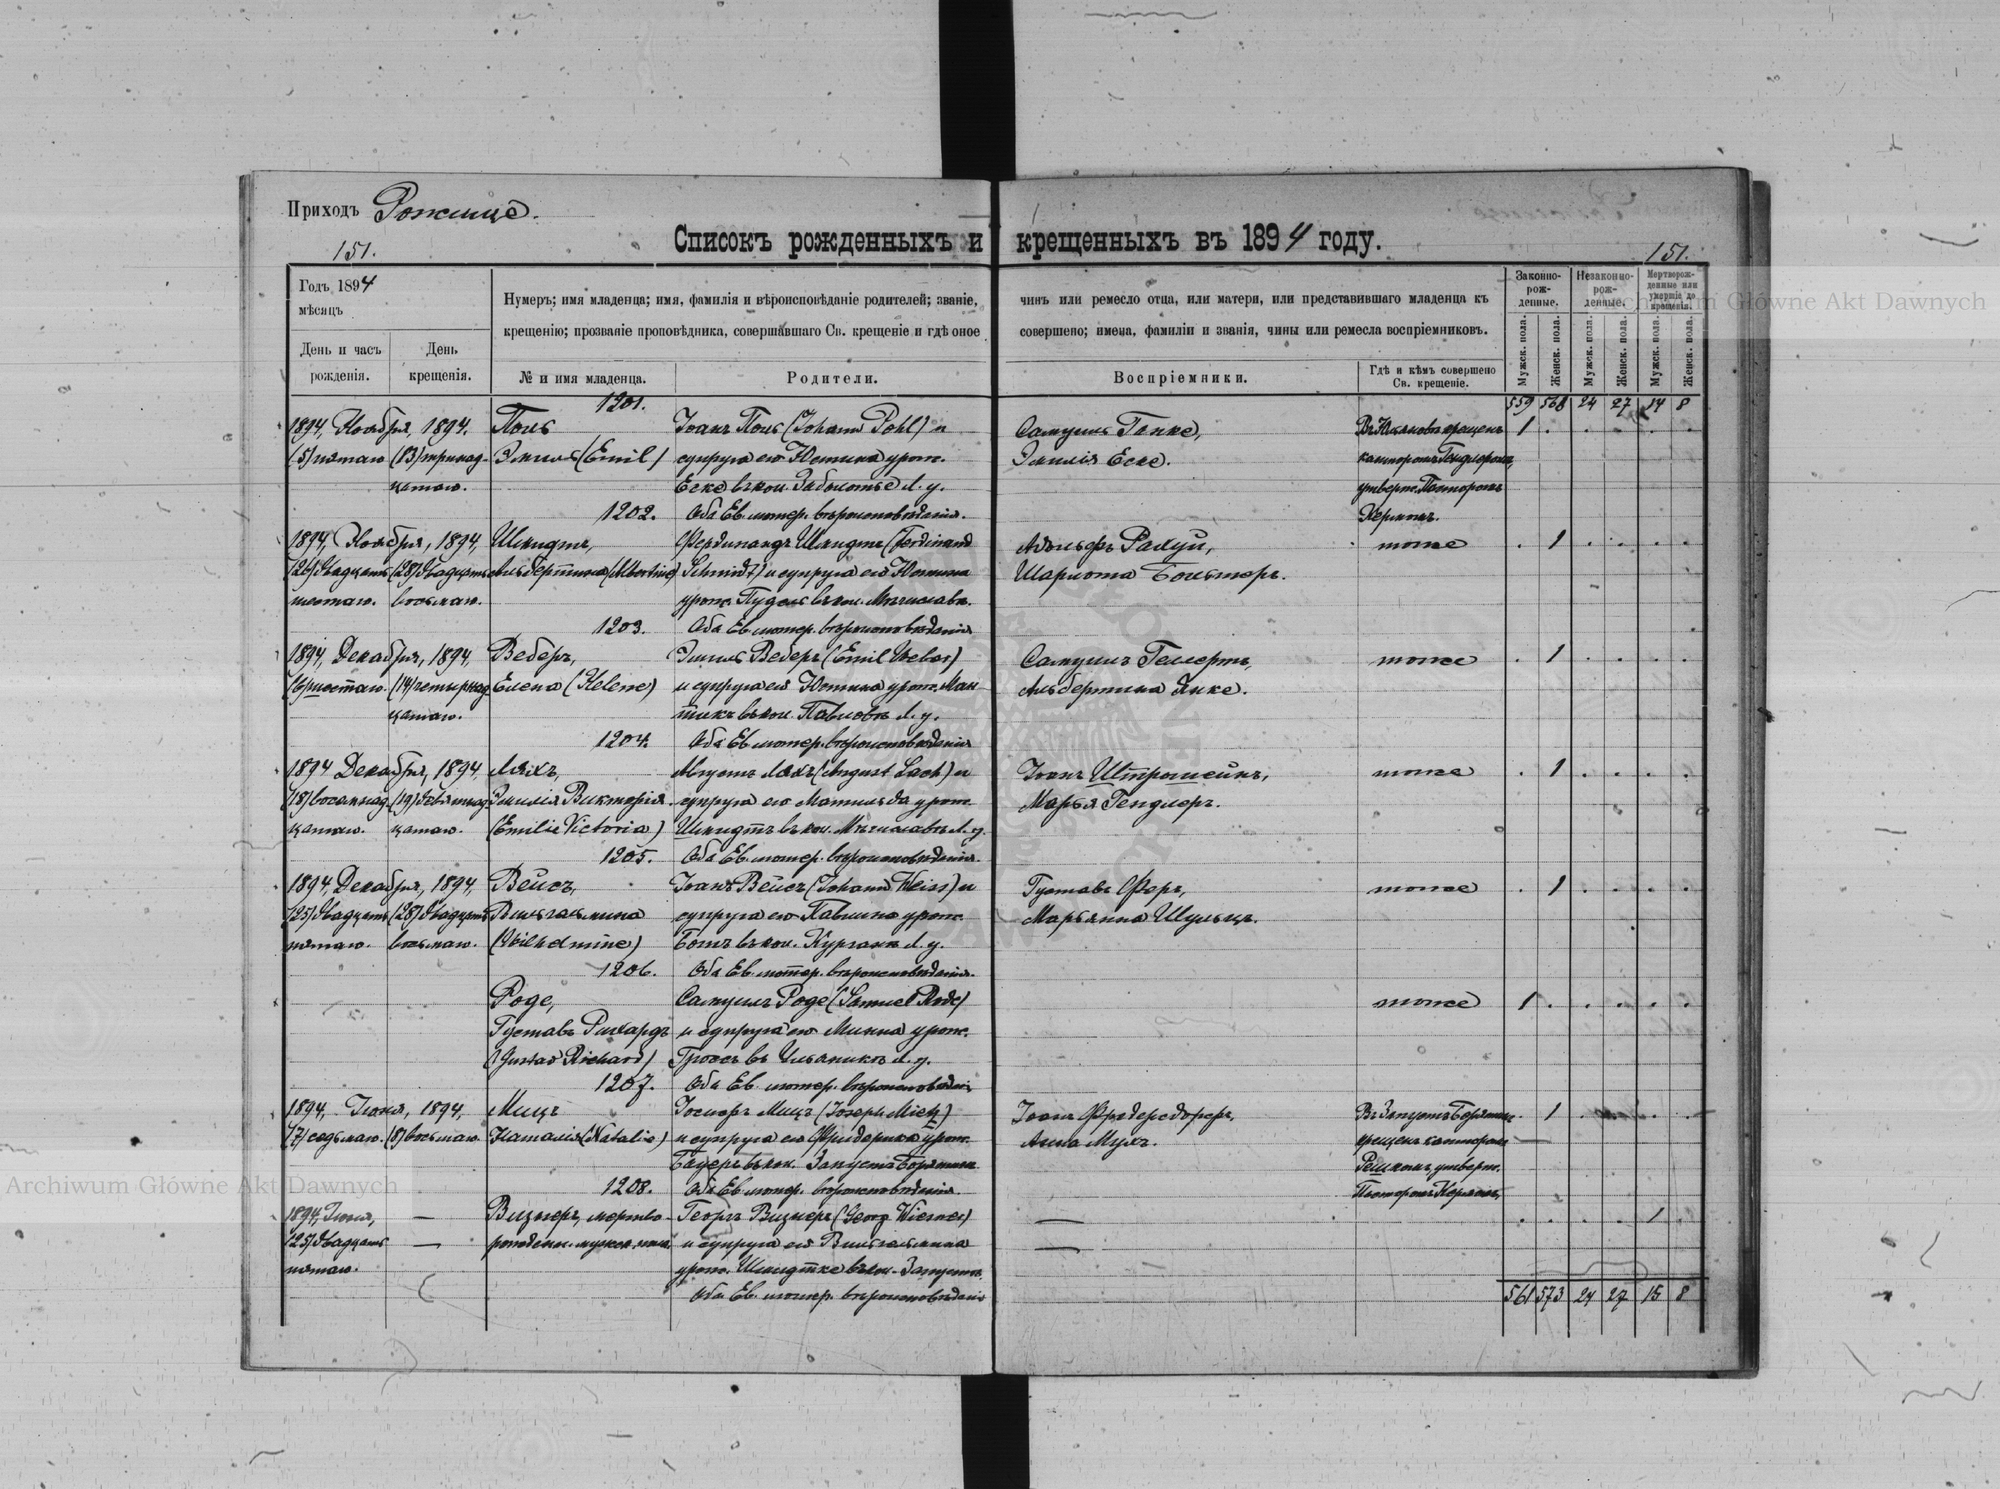 Приходъ Рожище.
151.
Списокъ рожденныхъ и крещенныхъ въ 1894 году.
151.
Годъ 1894
мѣсяцъ
День и часъ рожденія.
День крещенія.
Нумеръ; имя младенца; имя, фамилія и вѣроисповѣданіе родителей; званіе, чинъ или ремесло отца, или матеря, или представившаго младенца къ
крещенію; прозваніе проповѣдника, совершавшаго Св. крещеніе и гдѣ оное совершено; имена, фамиліи и званія, чины или ремесла воспріемниковъ.
№ и имя младенца.
Родители.
Воспріемники.
Гдѣ и кѣмъ совершено Св. крещеніе.
Законно-рож-денные.
Незаконно-рож-денные.
Мертворож-денные или умершіе до крещенія.
Мужск. пола.
Женск. пола.
Мужск. пола.
Женск. пола.
Мужск. пола.
Женск. пола.
559 568 24 27 14 8
1201.
1894, Ноября, 1894. Поль Іоанъ Поль (Johann Pohl) и Самуилъ Генке, крещенъ 1
(5) пятаго (13) тринад- Эмиль (Emil) супруга его Юстина урож. Эмилія Еске. канторомъ Гендлеромъ,
цатаго. Еске въ кол. Заболотье Л. у. утверж. Пасторомъ
1202. Оба Ев. лютер. вѣроисповѣданія. Кермомъ.
1894, Ноября, 1894, Шмидтъ, Фердинандъ Шмидтъ (Ferdinand Адольфъ Радуй, тоже 1
(26) двадцать (28) двадцать Альбертина (Albertine) Schmidt) и супруга его Юстина Шарлота Больтеръ.
шестаго. восьмаго. урож. Пудель въ кол. Мечиславк.
1203. Оба Ев. лютер. вѣроисповѣданія
1894, Декабря, 1894, Веберъ, Эмиль Веберъ (Emil Weber) Самуилъ Гелертъ, тоже 1
(6) шестаго. (14) четырнад- Елена (Helene) и супруга его Юстина урож. Ман- Альбертина Янке.
цатаго. тикъ въ кол. Павловк Л. у.
1204. Оба Ев. лютер. вѣроисповѣданія
1894 Декабря, 1894, Ляхъ, Августъ Ляхъ (August Lach) и Іоанъ Штромейкъ, тоже 1
(18) восемнад- (19) девятнад- Эмилія Викторія супруга его Матильда урож. Марья Гендлеръ.
цатаго. цатаго. (Emilie Victoria) Шмидтъ въ кол. Мечиславк Л. у.
1205. Оба Ев. лютер. вѣроисповѣданія.
1894, Декабря, 1894, Вейсъ, Іоанъ Вейсъ (Johann Weiss) и Густавъ Феръ, тоже 1
(25) двадцать (28) двадцать Вильгельмина супруга его Павлина урож. Марьянна Шульцъ.
пятаго. восьмаго. (Wilhelmine) Ботъ въ кол. Курганы Л. у.
1206. Оба Ев. лютер. вѣроисповѣданія.
Роде, Самуилъ Роде (Samuel Rode) тоже 1
Густавъ Рихардъ и супруга его Минна урож.
(Gustav Richard) Гроссъ въ Ульяникъ Л. у.
1207. Оба Ев. лютер. вѣроисповѣданія
1894, Іюня, 1894, Мицъ Іосифъ Мицъ (Joseph Mietz) Іоанъ 1
(7) седьмаго. (8) восьмаго Наталія (Natalie) и супруга его Фридерика урож. Анна Мухъ. крещенъ канторомъ
Бауеръ въ кол. Запустъ Борятинъ утверж.
1208. Оба Ев. лютер. вѣроисповѣданія. Пасторомъ Кермомъ,
1894, Іюня, — Визнеръ, мертво- Георгъ Визнеръ (Georg Wiesner) — 1
(25) двадцать — рожденн. мужск. пола. и супруга его Вильгельмина —
пятаго. урож. Шмидтке въ кол. Запустъ.
Оба Ев. лютер. вѣроисповѣданія
561 573 24 27 15 8
Archiwum Główne Akt Dawnych
Archiwum Główne Akt Dawnych